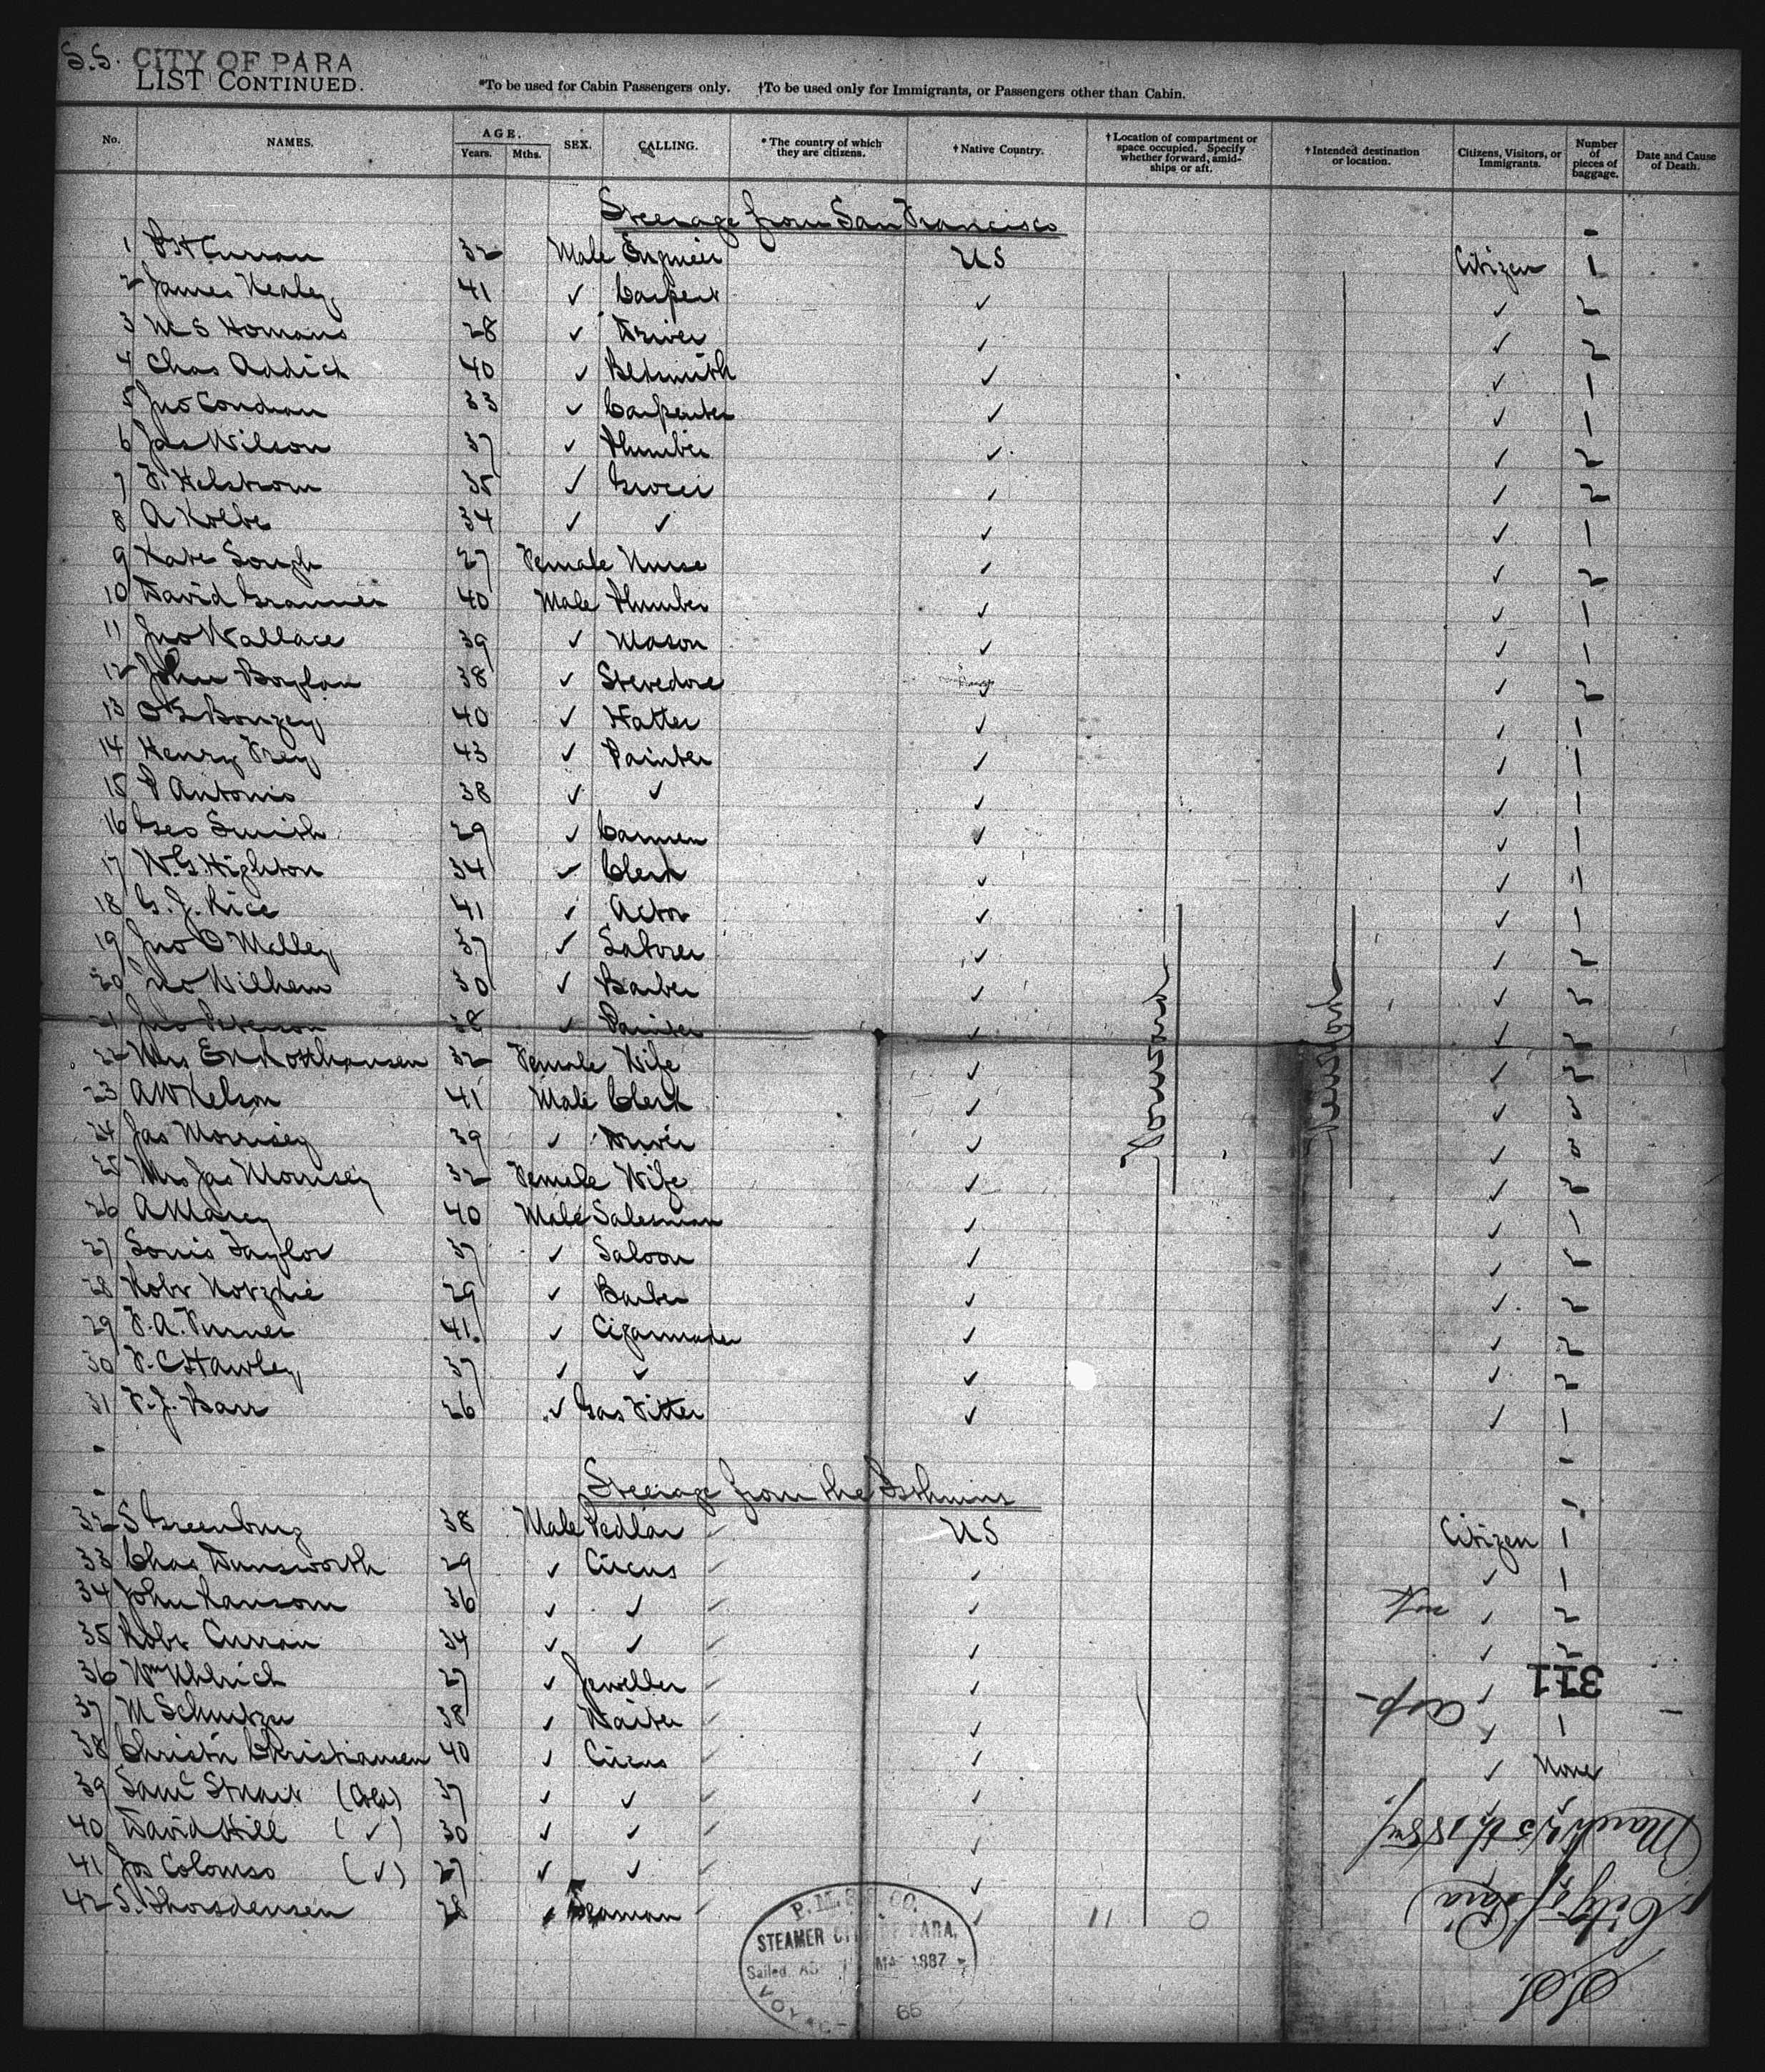 S.S. CITY OF PARA
LIST CONTINUED.
*To be used for Cabin Passengers only. †To be used only for Immigrants, or Passengers other than Cabin.
No. NAMES. AGE. Years. Mths. SEX. CALLING. * The country of which they are citizens. † Native Country. † Location of compartment or space occupied. Specify whether forward, amidships or aft. † Intended destination or location. Citizens, Visitors, or Immigrants. Number of pieces of baggage. Date and Cause of Death.
Steerage from San Francisco
1 P H Curran 32 Male Engineer US Citizen 1
2 James Healey 41 ✓ ✓ ✓ 2
3 M S Homans 28 ✓ Driver ✓ ✓ 2
4 Chas Addick 40 ✓ Blksmith ✓ ✓ 1
5 Jno Condran 33 ✓ Carpenter ✓ ✓ 1
6 Jas Wilson 37 ✓ Plumber ✓ ✓ 2
7 F. Helstrom 35 ✓ Grocer ✓ ✓ 2
8 A Kolbe 34 ✓ ✓ ✓ ✓ 1
9 Kate Gough 27 Female Nurse ✓ ✓ 2
10 David 40 Male Plumber ✓ ✓ 1
11 Jno Wallace 39 ✓ Mason ✓ ✓ 1
12 John Boylan 38 ✓ Stevedore ✓ ✓ 2
13 Bonzey 40 ✓ Hatter ✓ ✓ 1
14 Henry Frey 43 ✓ Painter ✓ ✓ 1
15 P Antonio 38 ✓ ✓ ✓ ✓ 1
16 Geo Smith 29 ✓ Carmen ✓ ✓ 1
17 W. G. Highton 34 ✓ Clerk ✓ ✓ 1
18 G. J. Rice 41 ✓ Actor ✓ ✓ 1
19 Jno O Malley 37 ✓ Laborer ✓ ✓ 2
20 Jno Wilhem 30 ✓ Barber ✓ ✓ 2
21 Jno Peterson 38 ✓ Painter ✓ ✓ 2
22 Mrs Holthausen 32 Female Wife ✓ ✓ 2
23 A W Nelson 41 Male Clerk ✓ ✓
24 Jas Morrisey 39 ✓ Driver ✓ ✓ 3
25 Mrs Jas Morrisey 32 Female Wife ✓ ✓ 2
26 A Marey 40 Male Salesman ✓ ✓ 1
27 Louis Taylor 37 ✓ Saloon ✓ ✓
28 Robt 29 ✓ Barber ✓ ✓ 2
29 F. A. Turner 41 ✓ Cigarmaker ✓ ✓ 2
30 F. C Hawley 37 ✓ ✓ ✓ ✓ 2
31 F. J. Barr 26 ✓ Gas Fitter ✓ ✓ 1
Forward
New York
Steerage from the Isthmus
32 S Greenburg 38 Male Pedlar US Citizen 1
33 Chas Dunsworth 29 ✓ Circus ✓ ✓ 1
34 John Ransom 36 ✓ ✓ ✓ ✓ 2
35 Robt Curran 34 ✓ ✓ ✓ ✓ 2
36 Wm Uhlrich 27 ✓ Jeweller ✓ ✓
37 M Schultze 38 ✓ Waiter ✓ ✓ 1
38 Christn Christiansen 40 ✓ Circus ✓ ✓ None
39 Saml Stuart 37 ✓ ✓ ✓
40 David Hill (✓) 30 ✓ ✓ ✓
41 Jos Colomso (✓) 27 ✓ ✓ ✓
42 S. Thorsdensen 28 ✓ Seaman ✓
11 0
311
March 25th 1887
City of Para
S.S.
P. M. S. S. CO.
STEAMER CITY OF PARA,
Sailed MAR 1887
66